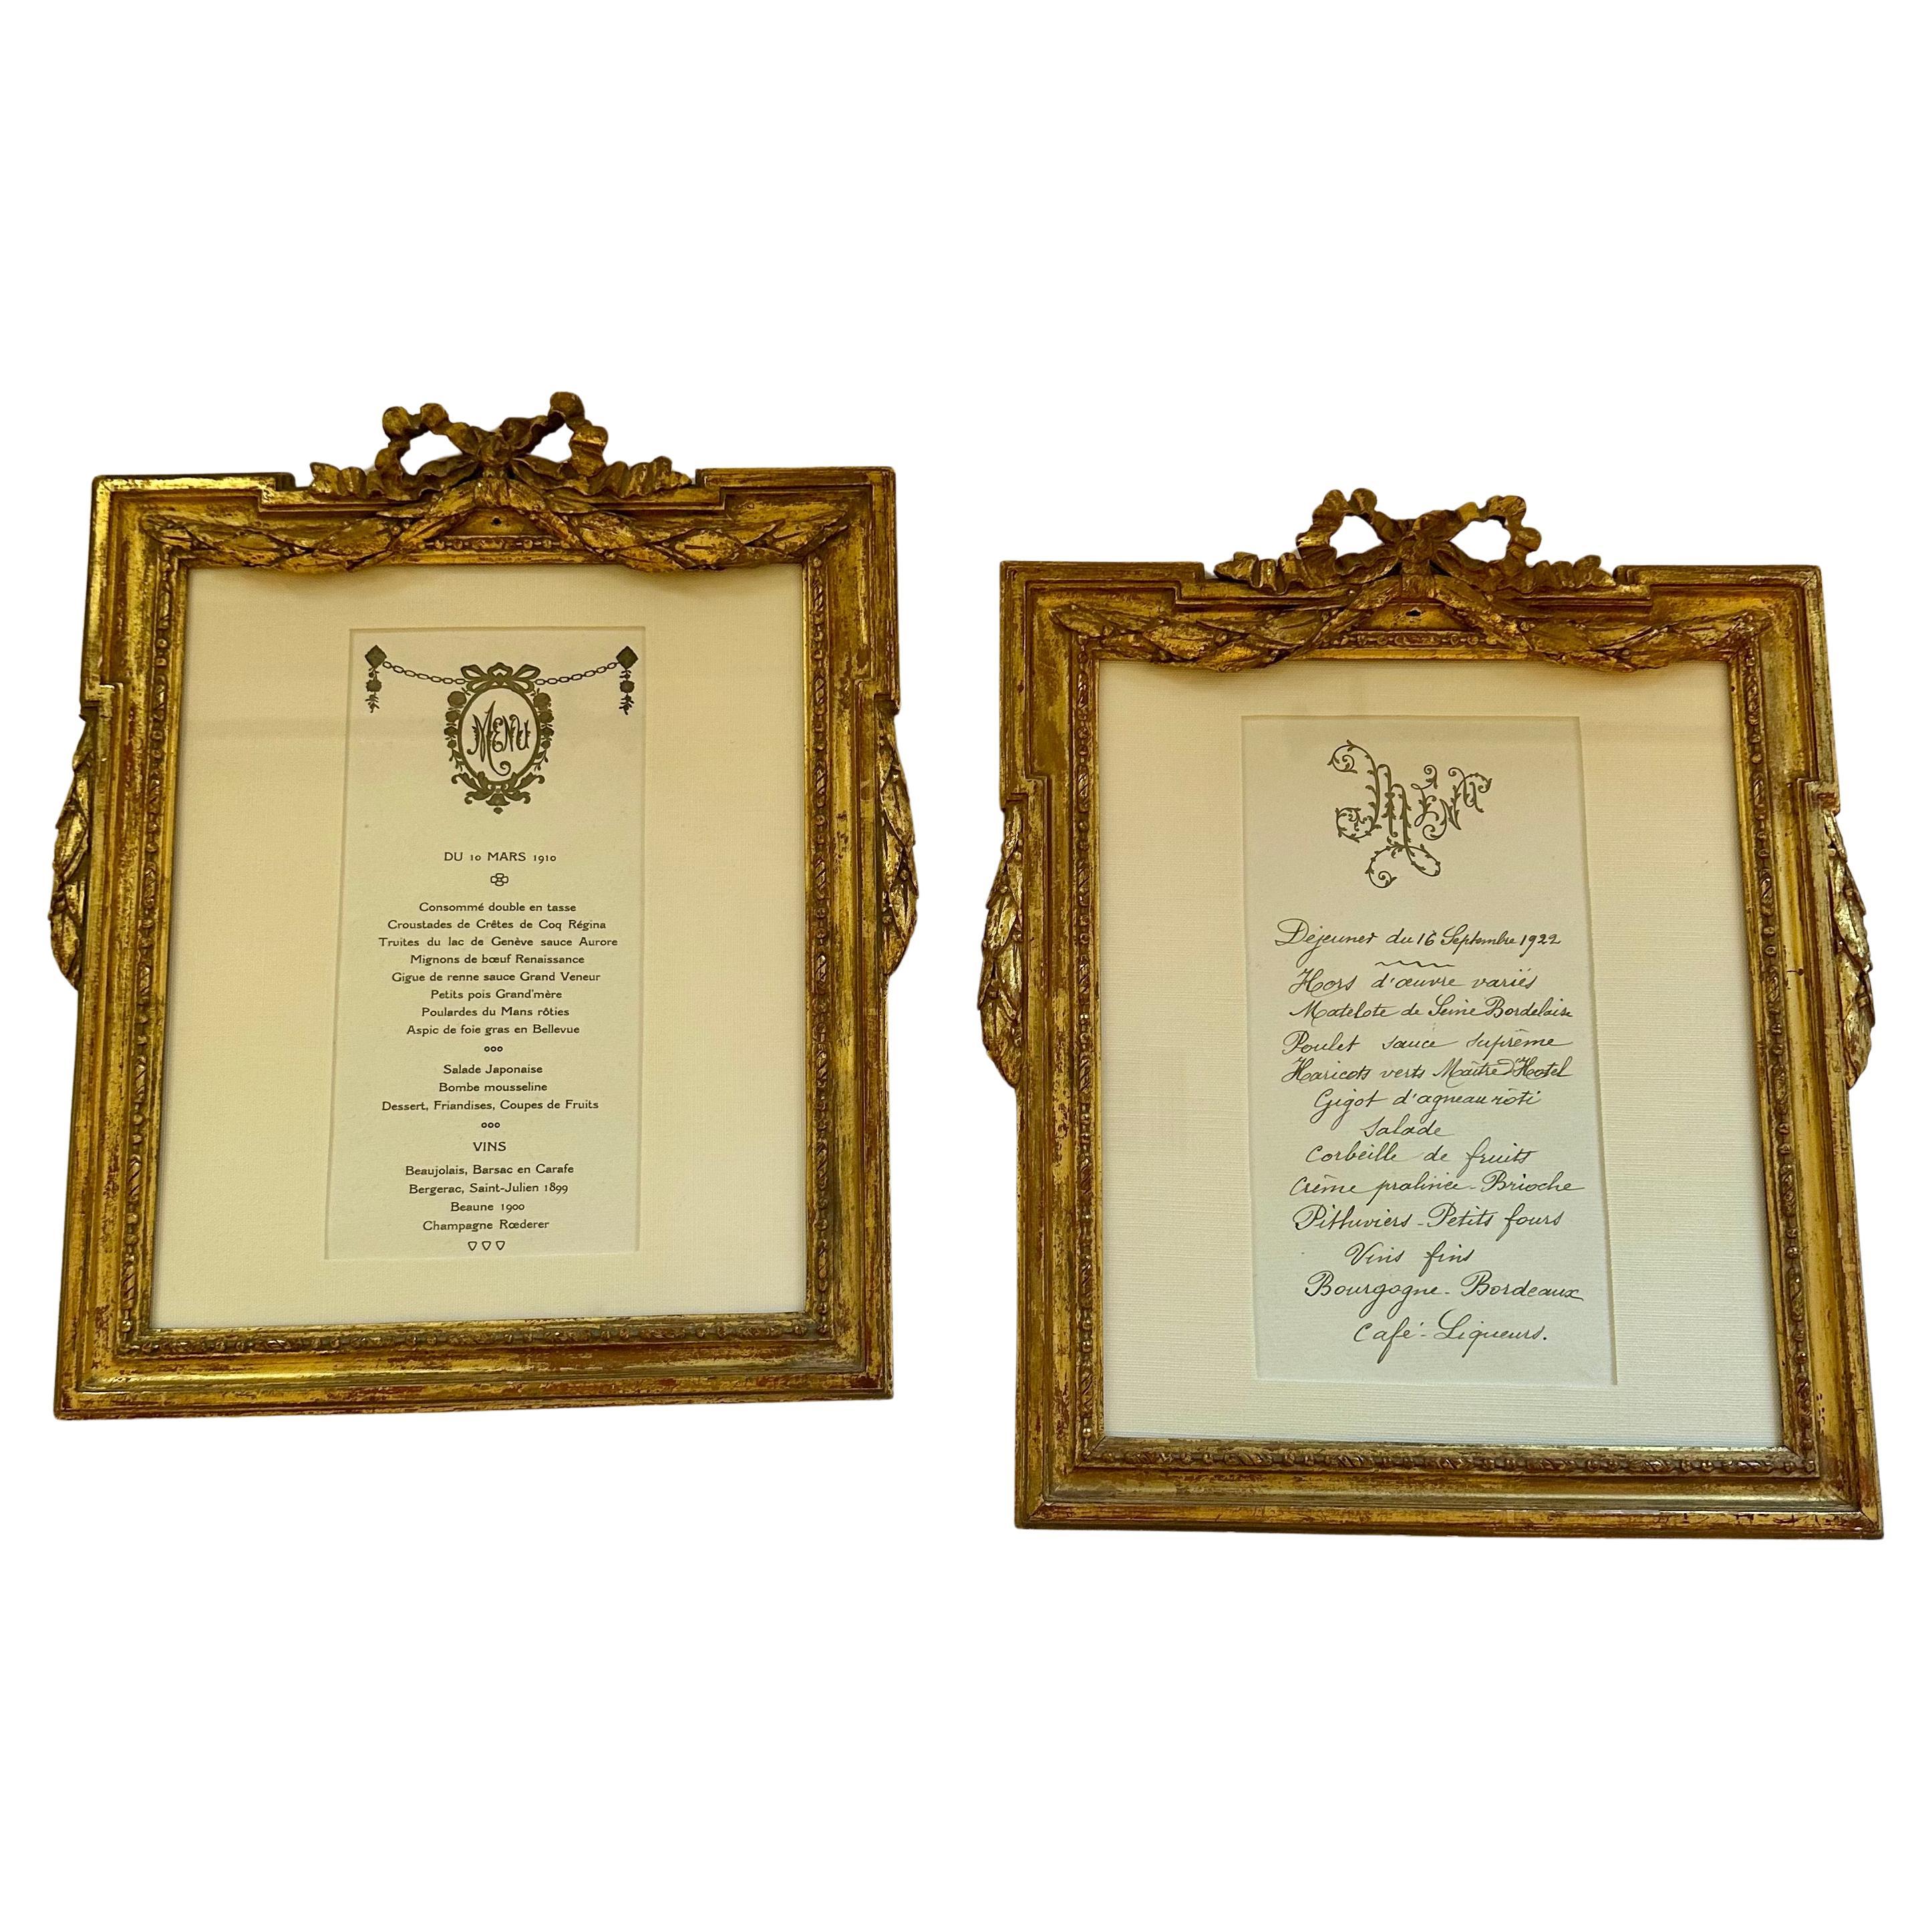 MENU
DU 10 MARS 1910
Consommé double en tasse
Croustades de Crêtes de Coq Régina
Truites du lac de Genève sauce Aurore
Mignons de bœuf Renaissance
Gigue de renne sauce Grand Veneur
Petits pois Grand'mère
Poulardes du Mans rôties
Aspic de foie gras en Bellevue
Salade Japonaise
Bombe mousseline
Dessert, Friandises, Coupes de Fruits
VINS
Beaujolais, Barsac en Carafe
Bergerac, Saint-Julien 1899
Beaune 1900
Champagne Rœderer
MENU
Déjeuner du 16 Septembre 1922
Hors d'œuvre variés
Matelote de Seine Bordelaise
Poulet sauce suprême
Haricots verts Maître d'Hotel
Gigot d'agneau rôti
Salade
Corbeille de fruits
Crème pralinée - Brioche
Pithiviers - Petits fours
Vins fins
Bourgogne - Bordeaux
Café - Liqueurs.